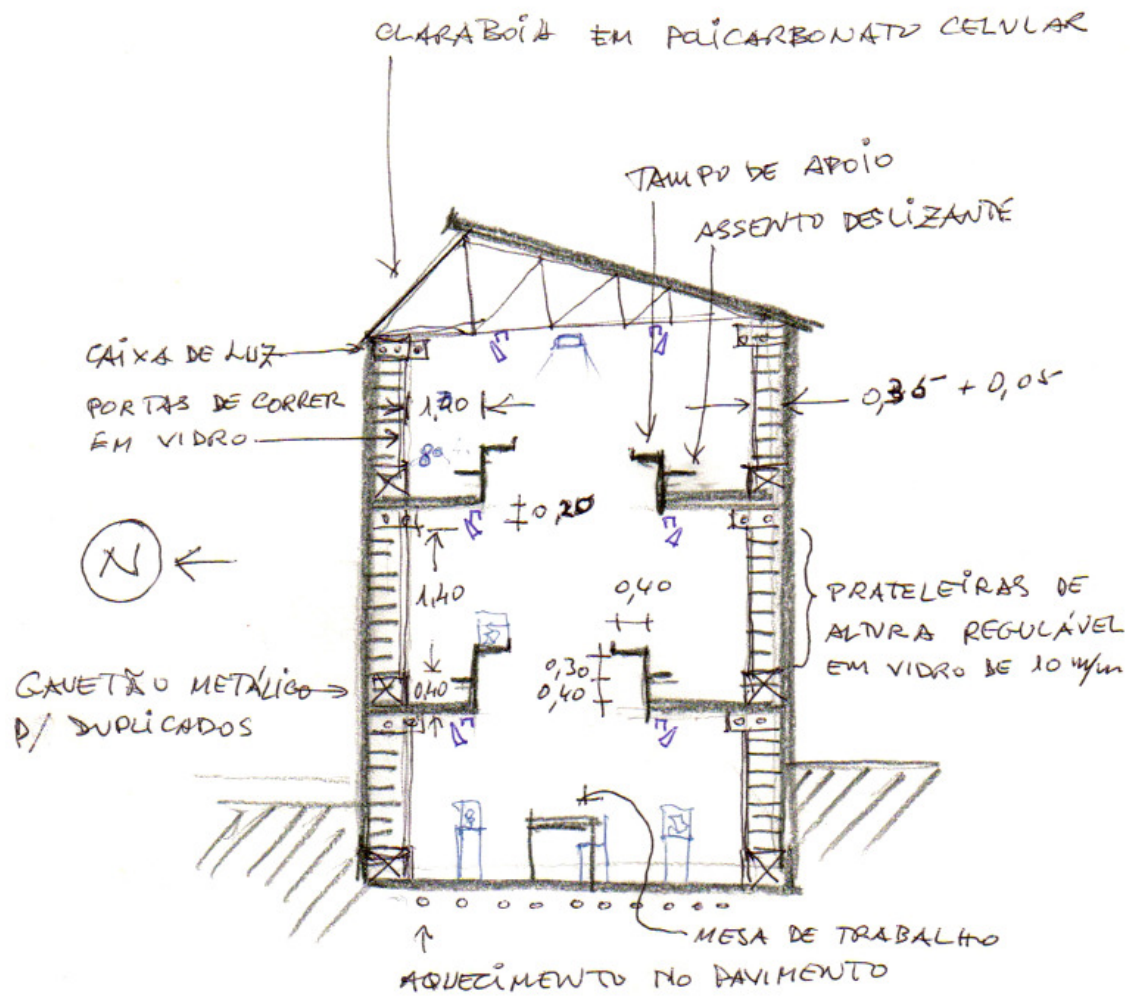 CLARABOIA EM POLICARBONATO CELULAR
TAMPO DE APOIO
ASSENTO DESLIZANTE
CAIXA DE LUZ
PORTAS DE CORRER
EM VIDRO
0,05
0,20
N
1,40
0,40
0,40
0,30
0,40
PRATELEIRAS DE
ALTURA REGULÁVEL
EM VIDRO DE 10 m/m
GAVETÃO METÁLICO
P/ DUPLICADOS
MESA DE TRABALHO
AQUECIMENTO NO PAVIMENTO